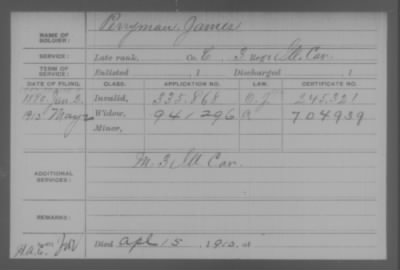 NAME OF SOLDIER: Perryman, James
SERVICE: Late rank, Co. C, 3 Reg't Ill. Cav.
TERM OF SERVICE: Enlisted , 1 Discharged , 1
DATE OF FILING. CLASS. APPLICATION NO. LAW. CERTIFICATE NO.
1880 Jan. 2. Invalid, 335.868 245.321
1912 May Widow, 941296 704939
Minor,
ADDITIONAL SERVICES: M. 3 Ill Cav.
REMARKS:
Died Apl 15, 1912, at